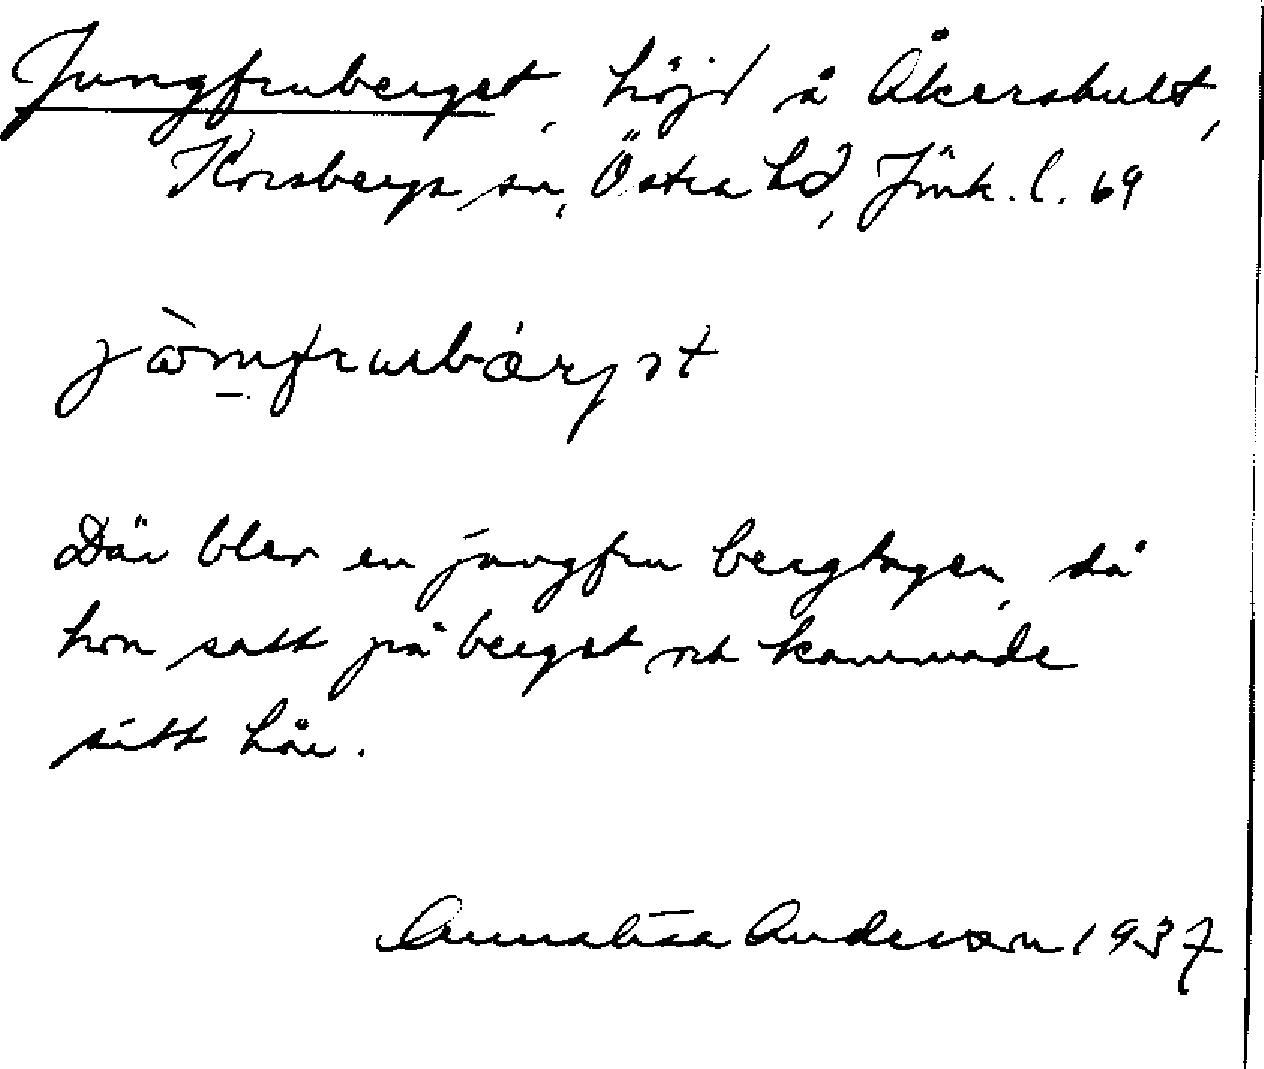 Jungfruberget, höjd å Åkershult,
Korsberga sn, Östra hd, Jönk. l. 69
Där blev en jungfru bergtagen, då
hon satt på berget och kammade
sitt hår.
Annalisa Anderson 1937